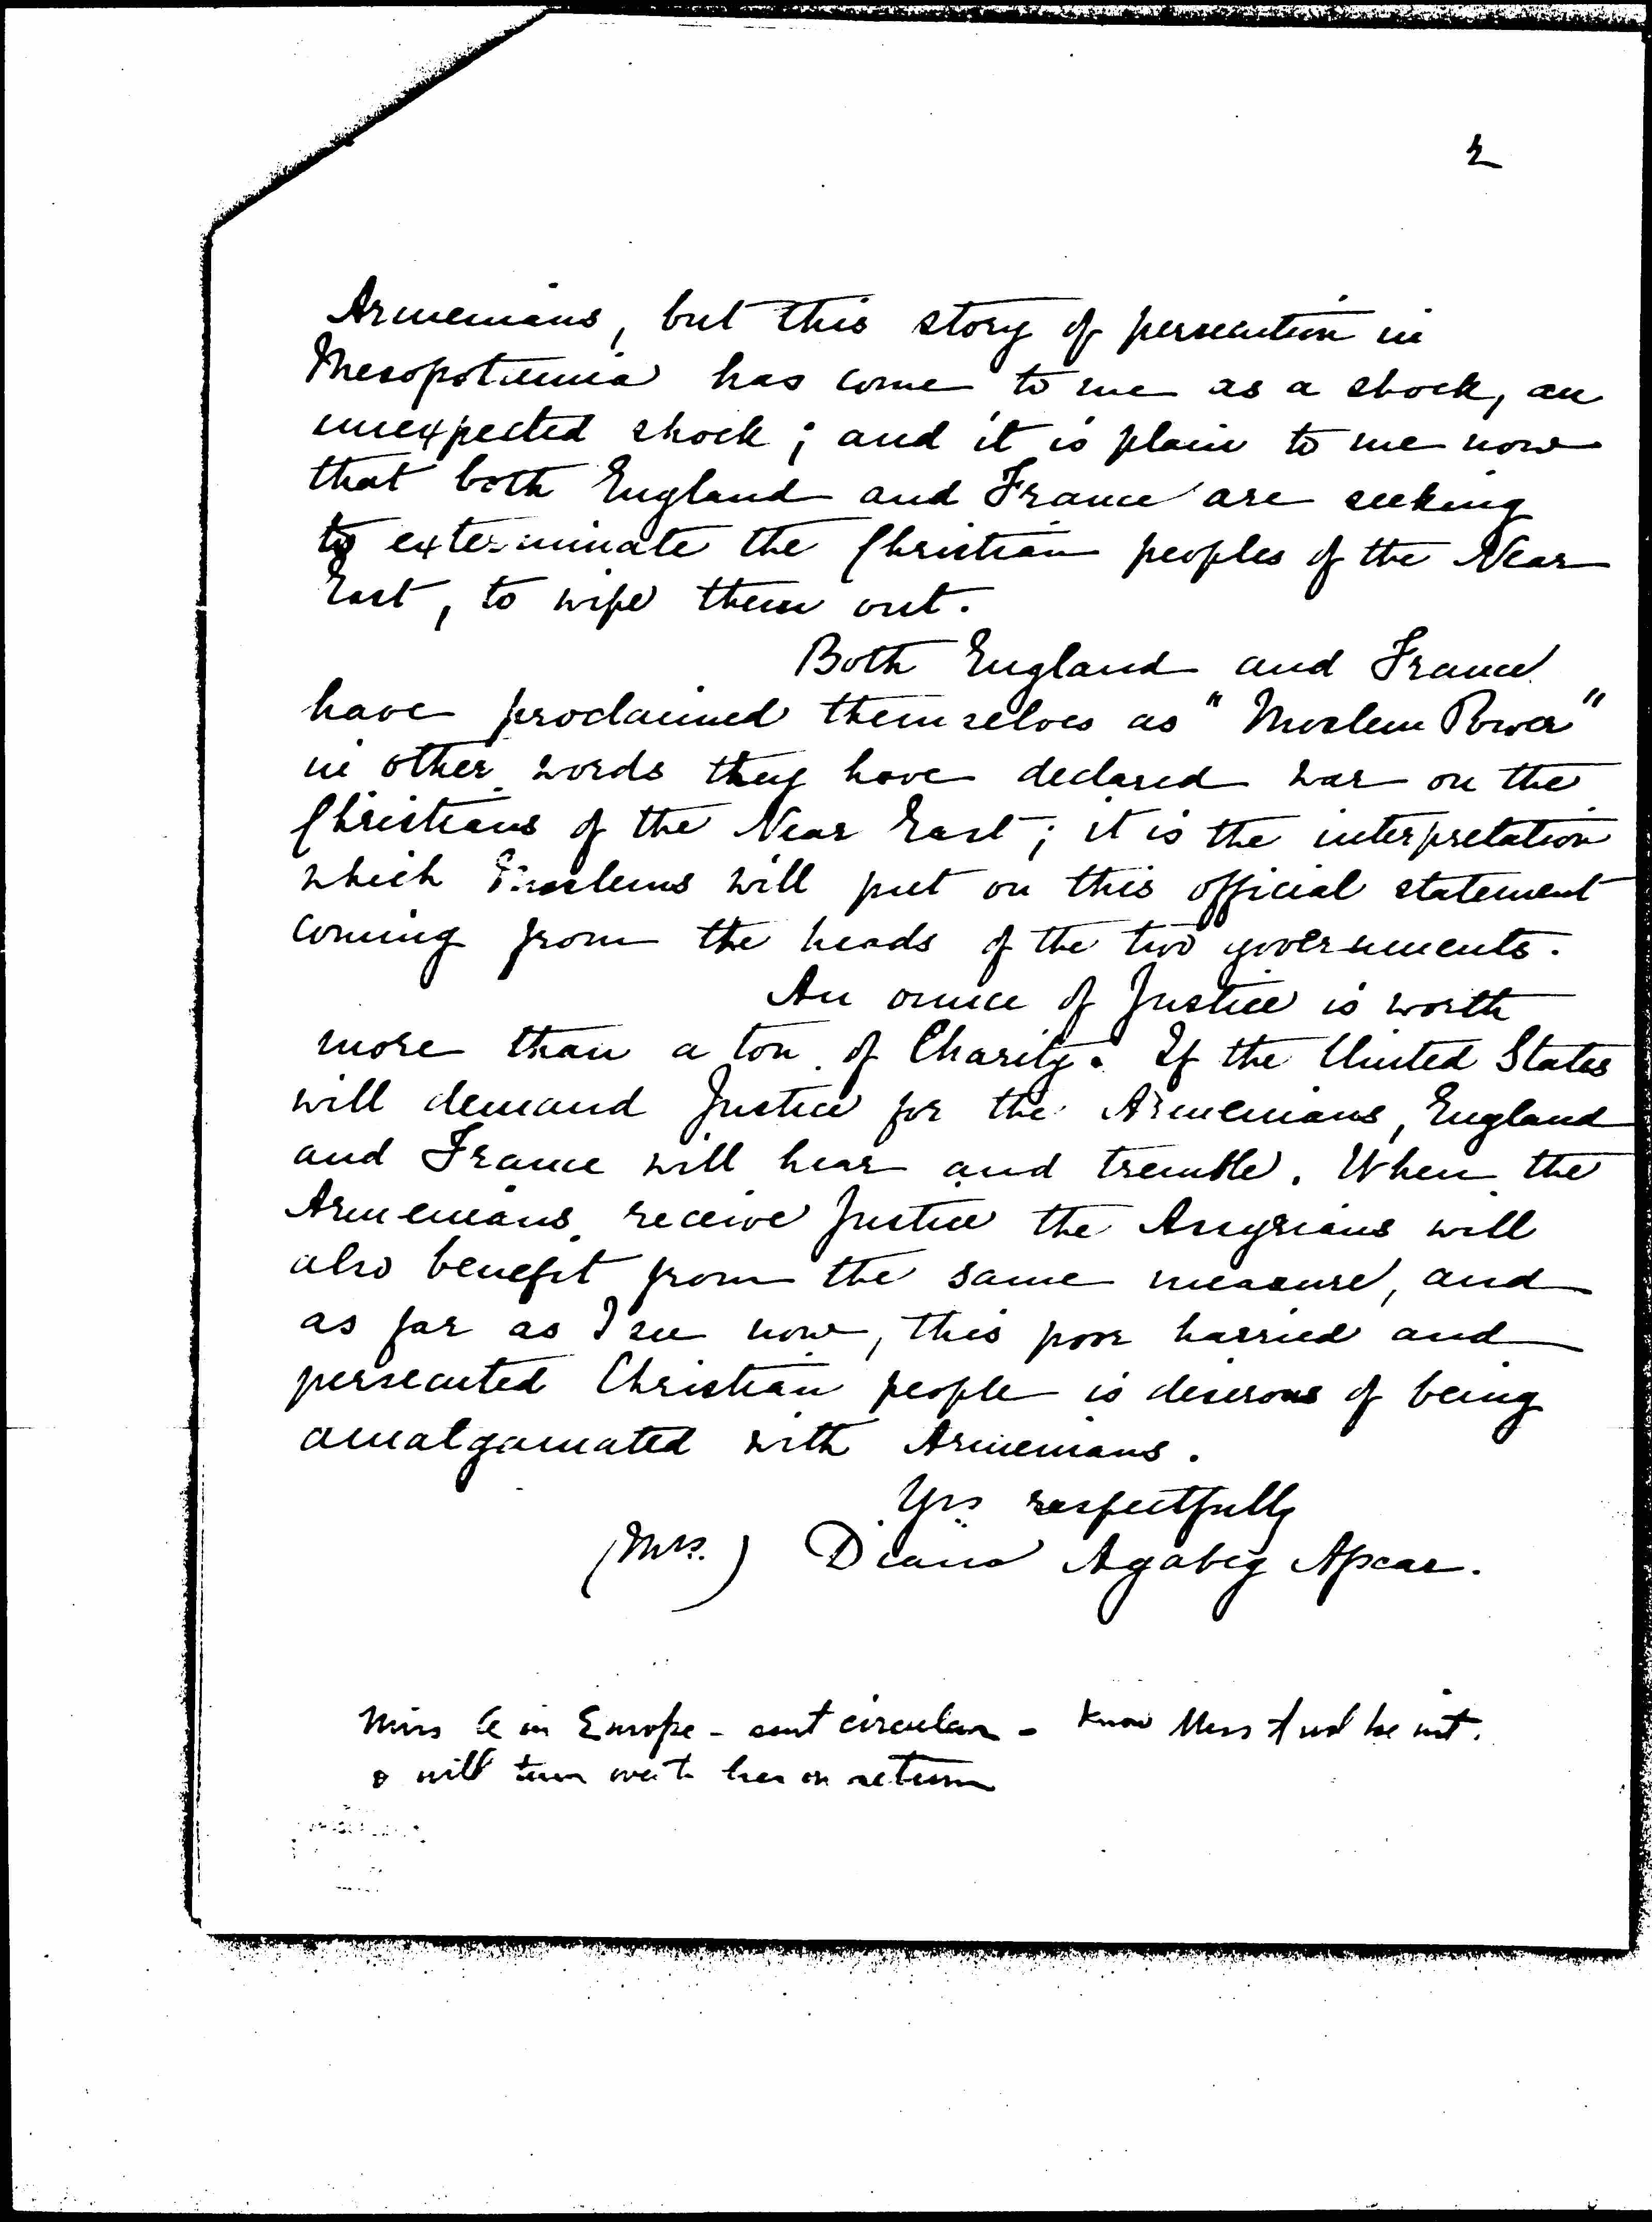 2
Armenians, but this story of persecution in
Mesopotamia has come to me as a shock, an
unexpected shock; and it is plain to me now
that both England and France are seeking
to exterminate the Christian peoples of the Near
East, to wipe them out.
Both England and France
have proclaimed themselves as "Moslem Power"
in other words they have declared war on the
Christians of the Near East; it is the interpretation
which Moslems will put on this official statement
coming from the heads of the two governments.
An ounce of Justice is worth
more than a ton of Charity. If the United States
will demand Justice for the Armenians, England
and France will hear and tremble. When the
Armenians receive Justice the Assyrians will
also benefit from the same measure, and
as far as I see now, this poor harried and
persecuted Christian people is desirous of being
amalgamated with Armenians.
Yrs respectfully
(Mrs.) Diana Agabeg Apcar.
Miss in Europe - sent circular - Know Miss be int.
& will turn over to her on return